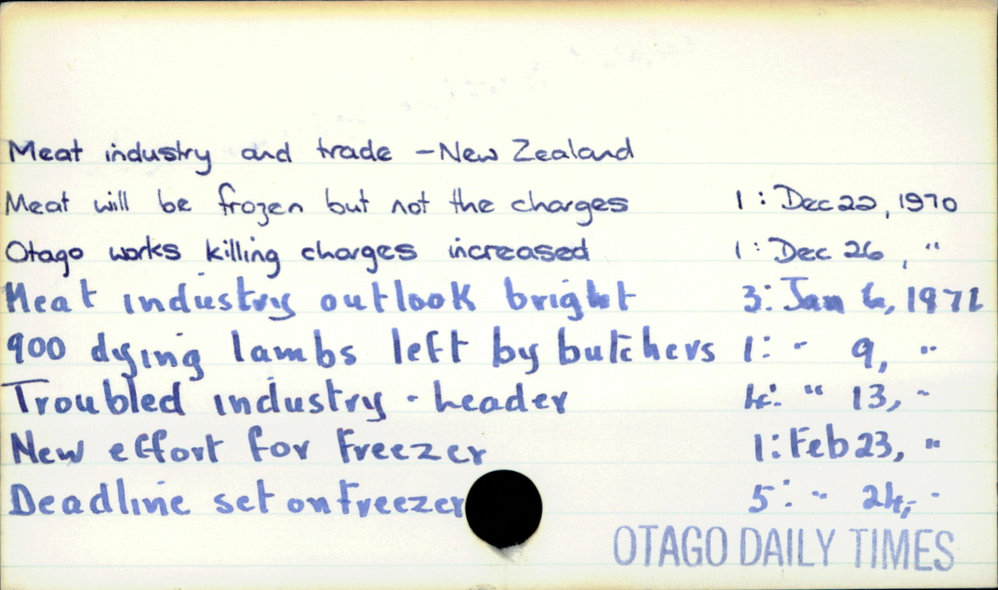 Meat industry and trade - New Zealand
Meat will be frozen but not the charges 1 : Dec 22, 1970
Otago works killing charges increased 1 : Dec 26, "
Meat industry outlook bright 3 : Jan 6, 1971
900 dying lambs left by butchers 1 : " 9, "
Troubled industry - Leader 4 : " 13, "
New effort for Freezer 1 : Feb 23, "
Deadline set on Freezer 5 : " 24, "
OTAGO DAILY TIMES